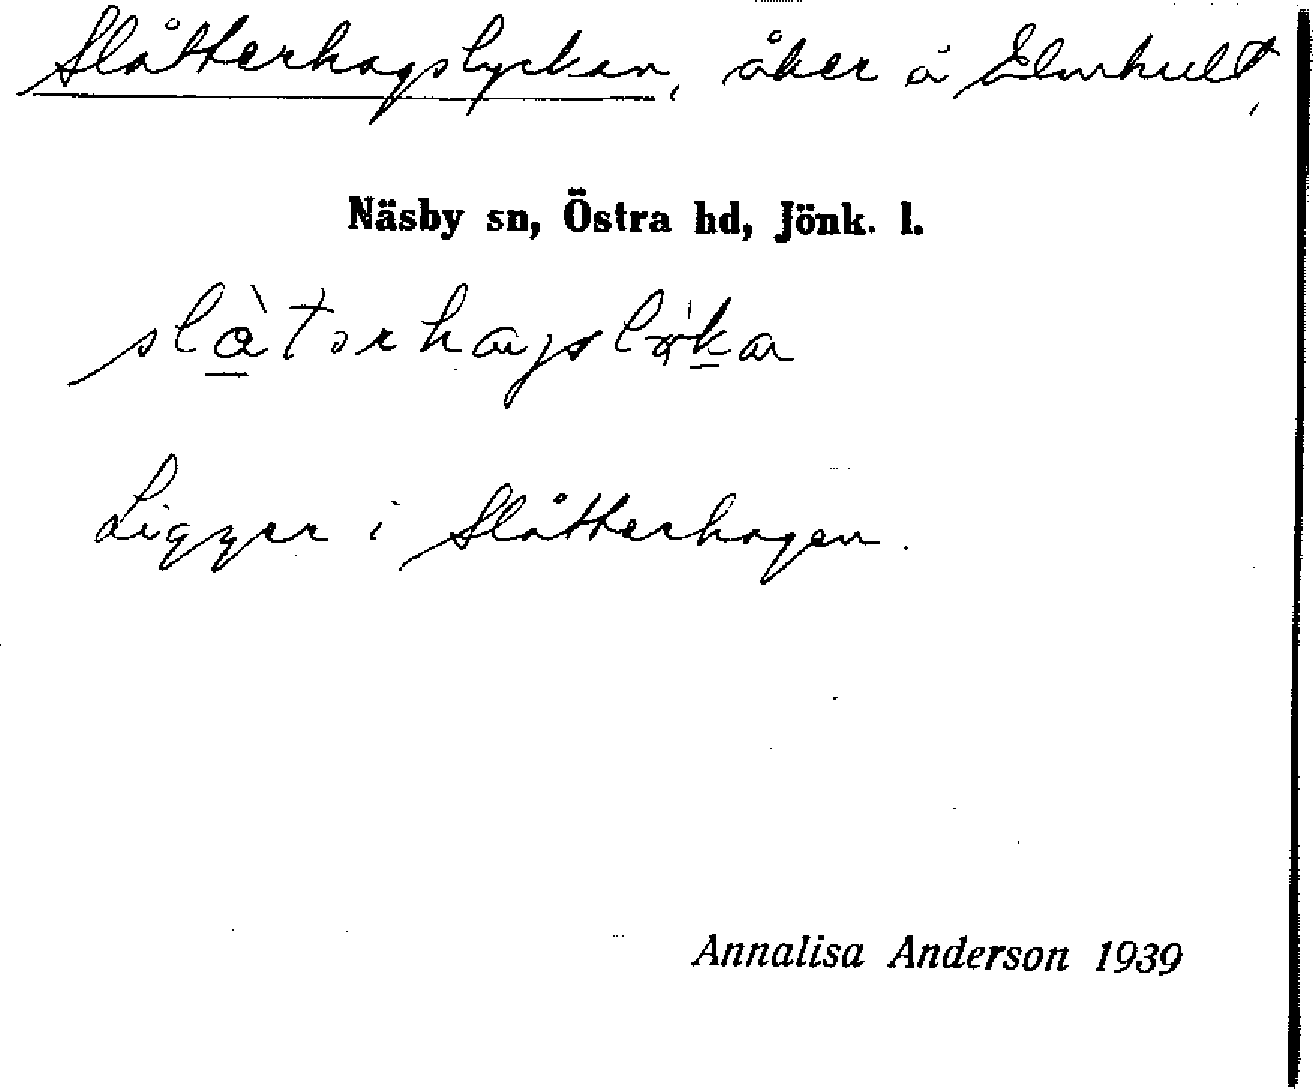 Slåtterhagslyckan, åker å Elmhult,
Näsby sn, Östra hd, Jönk. l.
Ligger i Slåtterhagen.
Annalisa Anderson 1939